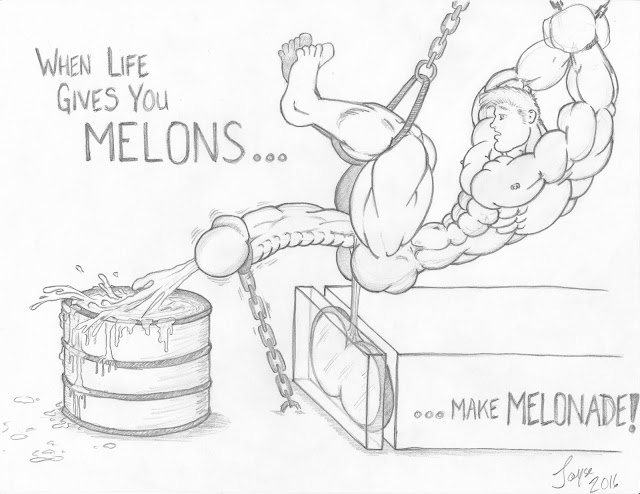 WHEN LIFE
GIVES YOU
MELONS...
...MAKE MELONADE!
2016